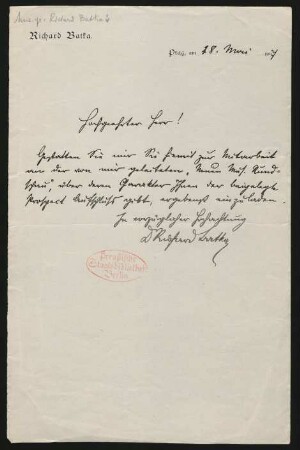 Richard Batka.
Prag, am 28. Mai
Hochgeehrter Herr!
Gestatten Sie mir Sie hiemit zur Mitarbeit
an der von mir geleiteten „Neuen Mus. Rund-
schau“, über deren Charakter Ihnen der beigelegte
Prospect Aufschluss gibt, ergebenst einzuladen.
In vorzüglicher Hochachtung
Dr Richard Batka
Preußische
Staatsbibliothek
Berlin